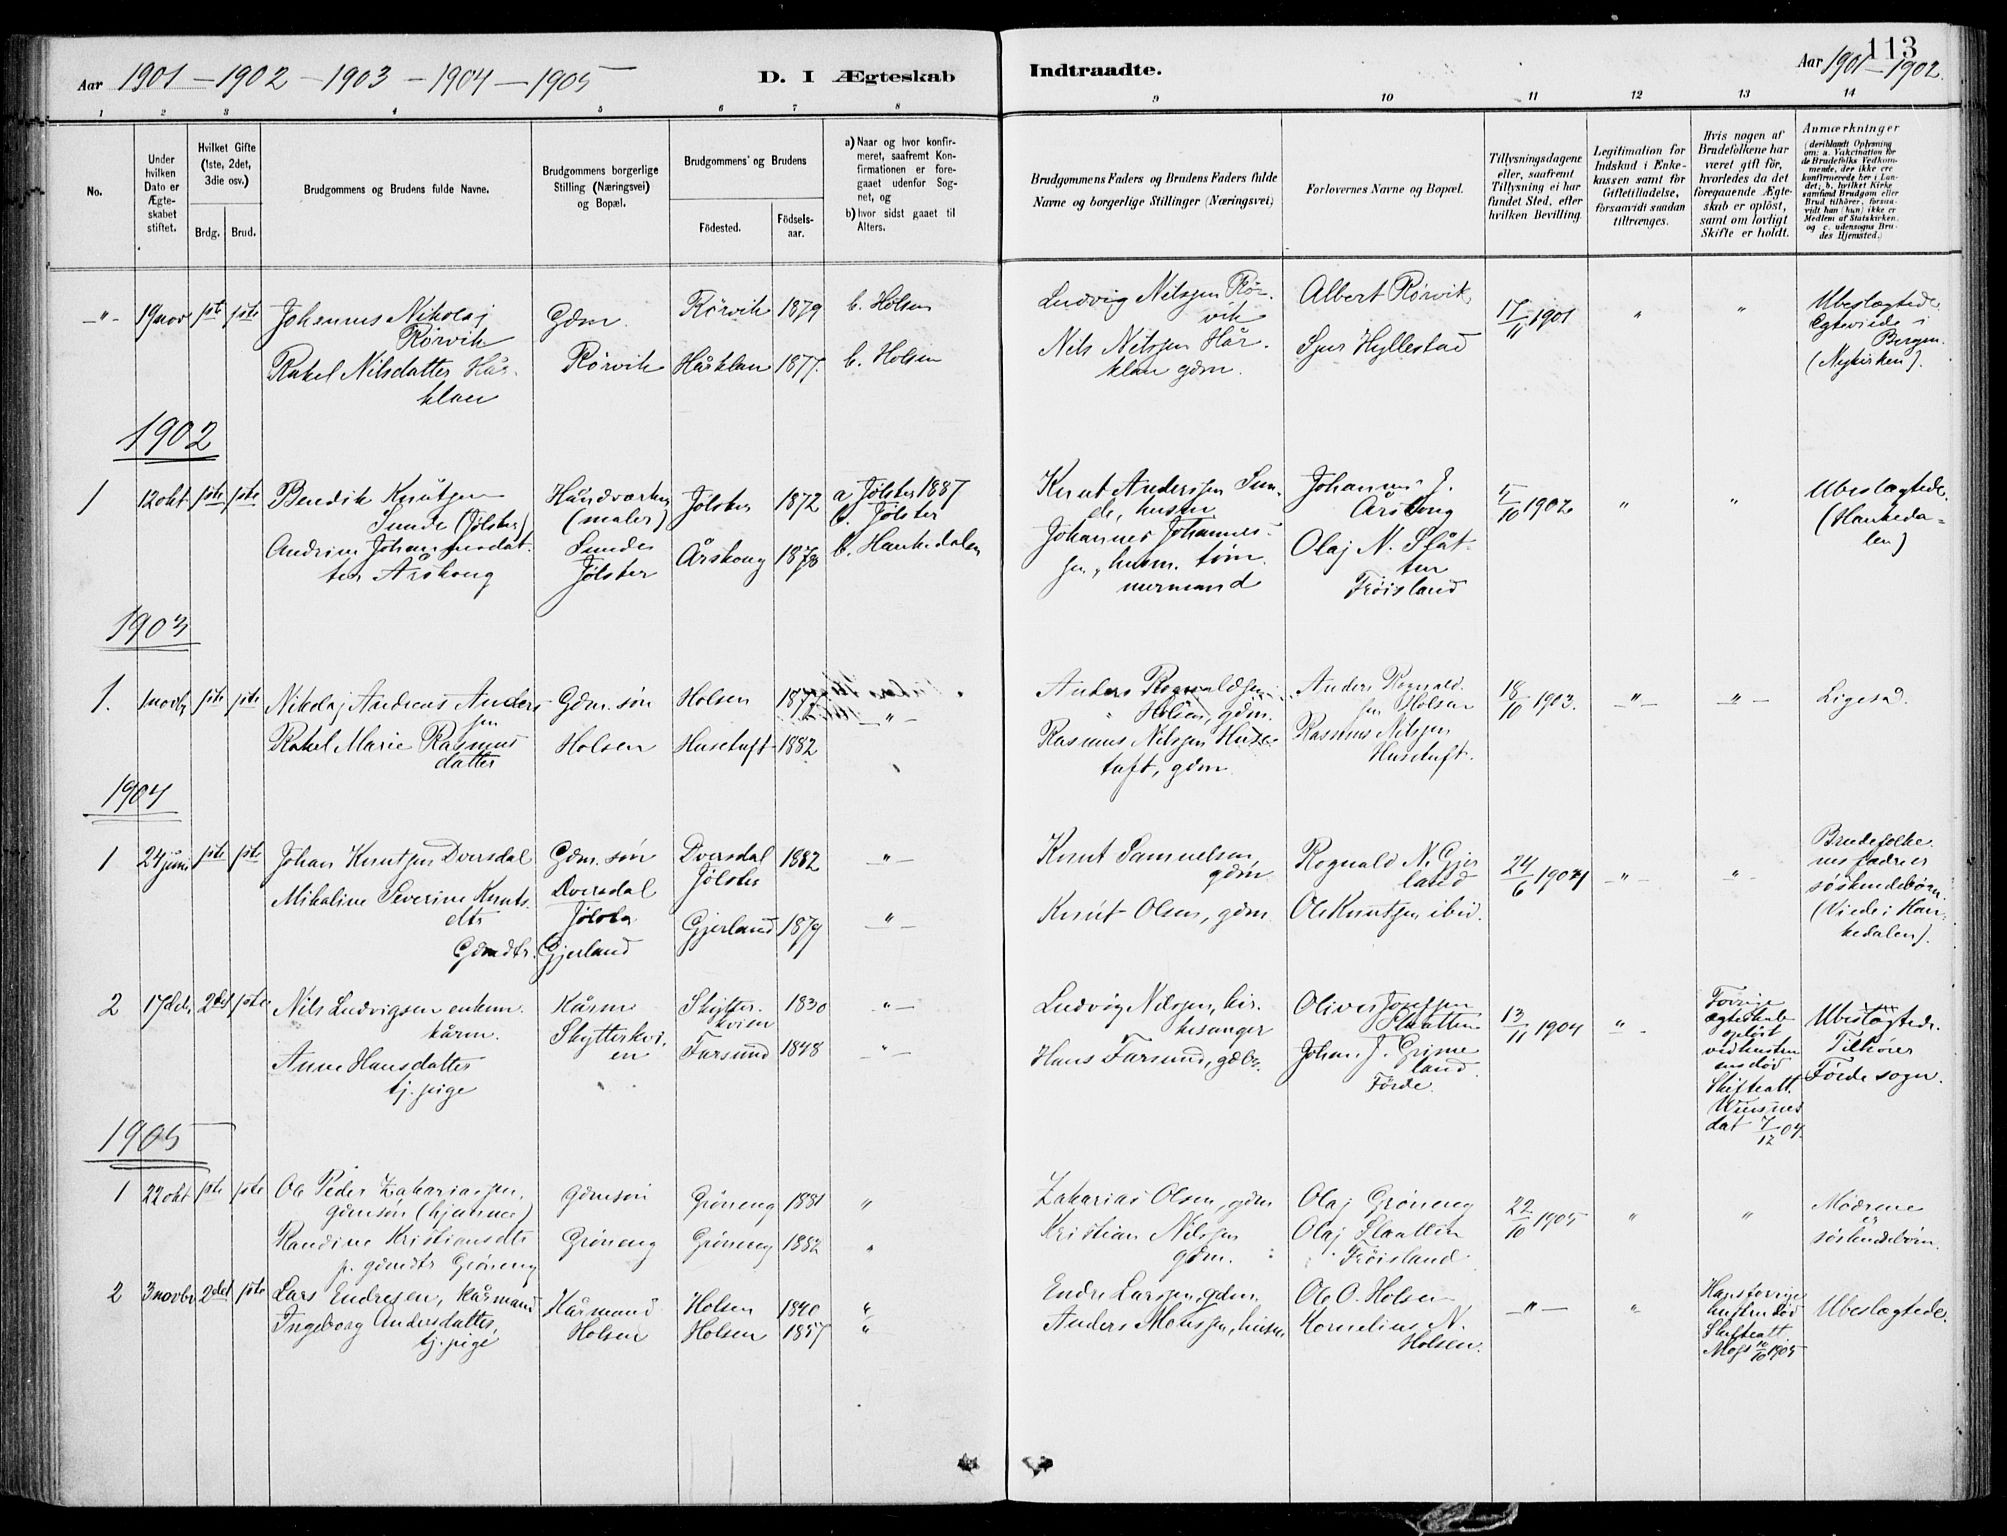 Aar 1901 – 1902 – 1903 – 1904 – 1905
D. I Ægteskab
Indtraadte.
113
Aar 1901 – 1902
1 2 3 4 5 6 7 8 9 10 11 12 13 14
No.
Under hvilken Dato er Ægte-skabet stiftet.
Hvilket Gifte (1ste, 2det, 3die osv.)
Brdg. Brud.
Brudgommens og Brudens fulde Navne.
Brudgommens borgerlige Stilling (Næringsvei) og Bopæl.
Brudgommens' og Brudens
Fødested.
Fødsels-aar.
a) Naar og hvor konfir-meret, saafremt Kon-firmationen er fore-gaaet udenfor Sog-net, og
b) hvor sidst gaaet til Alters.
Brudgommens Faders og Brudens Faders fulde Navne og borgerlige Stillinger (Næringsvei)
Forlovernes Navne og Bopæl.
Tillysningsdagene eller, saafremt Tillysning ei har fundet Sted, efter hvilken Bevilling.
Legitimation for Indskud i Enke-kassen samt for Giftetilladelse, forsaavidt saadan tiltrænges.
Hvis nogen af Brudefolkene har været gift før, hvorledes da det foregaaende Ægte-skab er opløst, samt om lovligt Skifte er holdt.
Anmærkninger (deriblandt Oplysning om: a. Vakcination for de Brudefolks Vedkom-mende, der ikke ere konfirmerede her i Lan-det; b. hvilket Kirke-samfund Brudgom eller Brud tilhører, forsaa-vidt han (hun) ikke er Medlem af Statskirken, og c. udensogns Bru-des Hjemsted.)
–"– 19 nov 1ste 1ste Johannes Nikolaj Rørvik Gdm. Rørvik 1879 b. Holsen
Rakel Nilsdatter Hår-klau Rørvik Håklau 1877 b. Holsen
Ludvig Nilssen Rør-vik
Nils Nilssen Hår-klau gdm.
Albert Rørvik
Sjur Hyllestad
17/11 1901 " "
Ubeslægtede
Egteviede i Bergen
(Nykirken).
1902
1 12 okt 1ste 1ste Bendik Knutsen Sunde (Jølster) Håndværker (maler) Jølster 1872 a. Jølster 1887 b. Jølster
Andrine Johannesdat-ter Årskoug Sunde Jølster Årskoug 1873 b. Haukedalen
Knut Anderssen Sun-de, husm.
Johannes Johannes-sen, husm. tøm-mermand
Johannes J. Årskoug
Olaj N. Slåt-ten
Frøisland
5/10 1902 " "
Ubeslægtede.
(Haukeda-len)
1903
1. 1 novbr 1ste 1ste Nikolaj Andreas Anders-sen Gdm. søn Holsen 1877 –"–
Rakel Marie Rasmus-datter Holsen Husetuft 1882
Anders Rognaldsen Holsen, gdm.
Rasmus Nilssen Huse-tuft, gdm.
Anders Rognald-sen Holsen
Rasmus Nilssen Husetuft.
18/10 1903. –"– –"– Ligesaa.
1904
1 24 juni 1ste 1ste Johan Knutsen Dvergsdal Gdm. søn Dvergsdal Jølster 1882 –"–
Mikaline Severine Knuts-dtr Gdmdtr. Jølster Gjerland Gjerland 1879 –"–
Knut Samuelsen, gdm
Knut Olsen, gdm.
Rognald N. Gjer-land
Ole Knutsen ibid.
24/6 1904 –"– –"–
Brudefolke-nes fædre er søskendebørn.
(Viede i Hau-kedalen).
2 17 dec. 2det 1ste Nils Ludvigsen enkem. kårm. Kårm Skytter-kvien 1830 –"–
Anne Hansdatter tj. pige Skytterkvi-en Farsund 1848 –"–
Ludvig Nilssen, kir-kesanger
Hans Farsund, gdbr.
Oliver Josefsen Slaatten
Johan J. Grime-land Førde
13/11 1904 –"–
Forrige ægteskab opløst ved hustru-ens død
Skifteatt.
dat 7/12 04.
Ubeslægtede.
Tilhører Førde sogn.
1905
1 22 okt 1ste 1ste Ole Peder Zakariassen, gdmsøn gdmsøn Grøneng 1881 "
Randine Kristiansdtr p. gdmdtr Grøneng Grøneng Grøneng 1882 "
Zakarias Olsen, gdm
Kristian Nilssen gdm.
Olaj Grøneng
Olaj Slaatten Frøisland
22/10 1905 " "
Mødrene er søskendebørn.
2 3 novbr 2det 1ste Lars Endresen, kårmand Kårmand Holsen 1840 "
Ingeborg Andersdatter, tj. pige Holsen Holsen 1857 "
Endre Larssen, gdm.
Anders Monssen, husm
Ole O. Holsen
Kornelius N. Holsen.
–"– "
Hans forrige hustru død
Skifteatt.
Ubeslægtede.